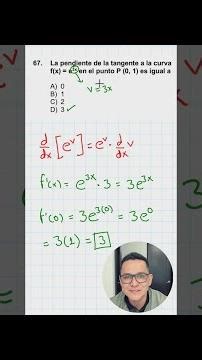 67. La pendiente de la tangente a la curva
f(x) = e³ˣ en el punto P (0, 1) es igual a
A) 0
B) 1
C) 2
D) 3 ✓
v = 3x
d/dx [eᵛ] = eᵛ · d/dx v
f'(x) = e³ˣ · 3 = 3e³ˣ
f'(0) = 3e³⁽⁰⁾ = 3e⁰
= 3(1) = 3